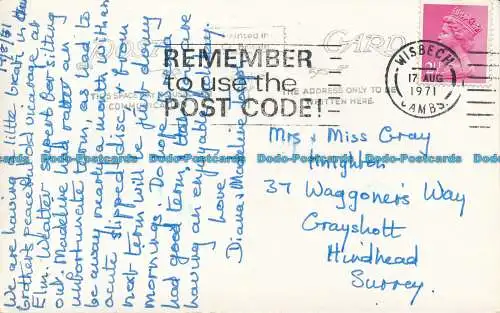 17/8/71
We are having a little break in this
brother's peaceful old vicarage at
Elm. Weather superb for sitting
out. Madeline had rather an
unfortunate term, as had to
be away nearly a month with an
acute slipped disc, & from
next term will be just doing
mornings. Do hope that you have
had good term, & are
having an enjoyable holiday.
Love from
Diana & Madeline
POST CARD
Printed in
REMEMBER
to use the
POST CODE!
THIS SPACE
COMMUNICATION
THE ADDRESS ONLY TO BE
WRITTEN HERE.
WISBECH
17 AUG
1971
CAMBS.
Mrs & Miss Gray
Knighton
37 Waggoner's Way
Grayshott
Hindhead
Surrey.
Dodo-Postcards Dodo-Postcards Dodo-Postcards Dodo-Postcards Dodo-Postcards